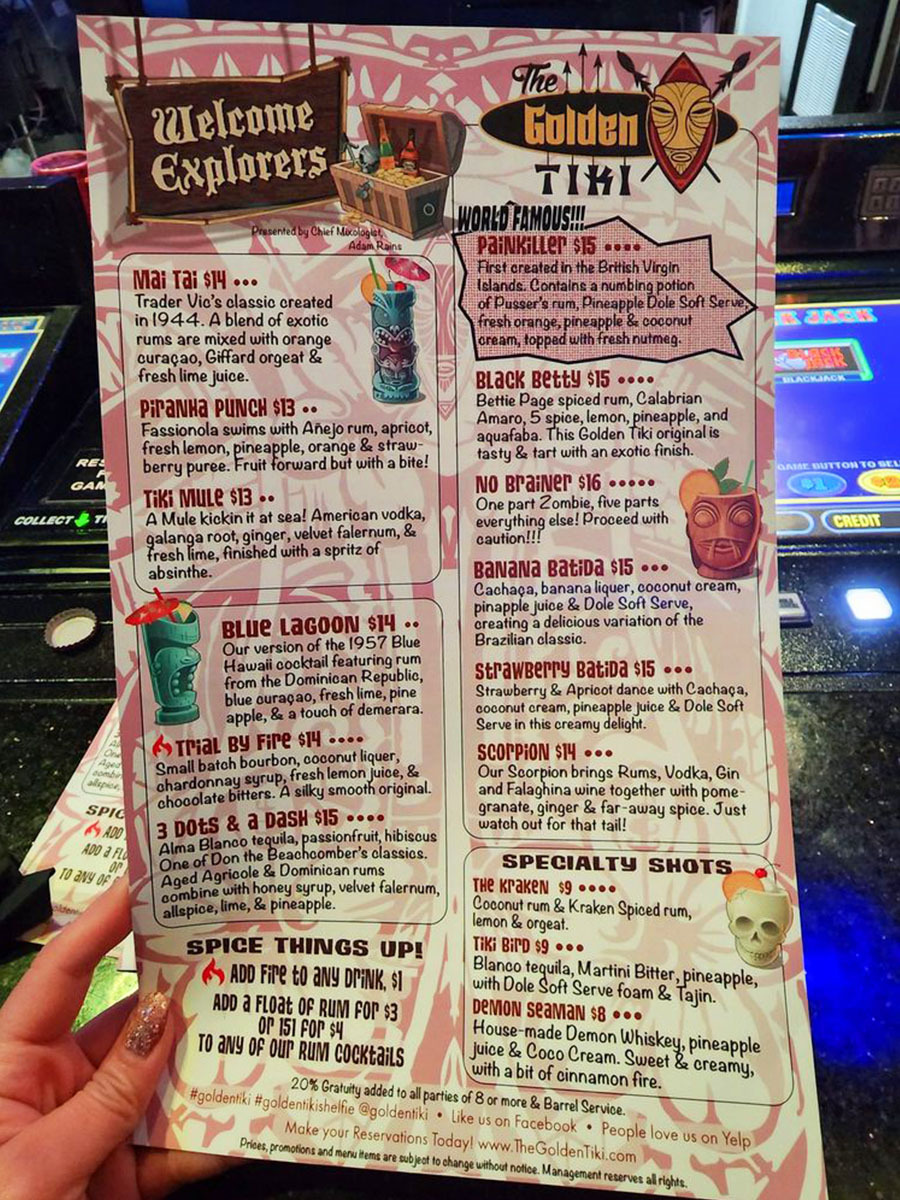 Welcome
Explorers
Presented by Chief Mixologist,
Adam Rains
Mai Tai $14 •••
Trader Vic's classic created
in 1944. A blend of exotic
rums are mixed with orange
curaçao, Giffard orgeat &
fresh lime juice.
Piranha Punch $13 ••
Fassionola swims with Añejo rum, apricot,
fresh lemon, pineapple, orange & straw-
berry puree. Fruit forward but with a bite!
Tiki Mule $13 ••
A Mule kickin it at sea! American vodka,
galanga root, ginger, velvet falernum, &
fresh lime, finished with a spritz of
absinthe.
Blue Lagoon $14 ••
Our version of the 1957 Blue
Hawaii cocktail featuring rum
from the Dominican Republic,
blue curaçao, fresh lime, pine
apple, & a touch of demerara.
Trial By Fire $14 ••••
Small batch bourbon, coconut liquer,
chardonnay syrup, fresh lemon juice, &
chocolate bitters. A silky smooth original.
3 Dots & a Dash $15 ••••
Alma Blanco tequila, passionfruit, hibiscus
One of Don the Beachcomber's classics.
Aged Agricole & Dominican rums
combine with honey syrup, velvet falernum,
allspice, lime, & pineapple.
SPICE THINGS UP!
ADD FIRE TO ANY DRINK, $1
ADD A FLOAT OF RUM FOR $3
OR 151 FOR $4
TO ANY OF OUR RUM COCKTAILS
The
Golden
TIKI
WORLD FAMOUS!!!
Painkiller $15 ••••
First created in the British Virgin
Islands. Contains a numbing potion
of Pusser's rum, Pineapple Dole Soft Serve,
fresh orange, pineapple & coconut
cream, topped with fresh nutmeg.
Black Betty $15 ••••
Bettie Page spiced rum, Calabrian
Amaro, 5 spice, lemon, pineapple, and
aquafaba. This Golden Tiki original is
tasty & tart with an exotic finish.
No Brainer $16 •••••
One part Zombie, five parts
everything else! Proceed with
caution!!!
Banana Batida $15 •••
Cachaça, banana liquer, coconut cream,
pinapple juice & Dole Soft Serve,
creating a delicious variation of the
Brazilian classic.
Strawberry Batida $15 •••
Strawberry & Apricot dance with Cachaça,
coconut cream, pineapple juice & Dole Soft
Serve in this creamy delight.
Scorpion $14 •••
Our Scorpion brings Rums, Vodka, Gin
and Falaghina wine together with pome-
granate, ginger & far-away spice. Just
watch out for that tail!
SPECIALTY SHOTS
The Kraken $9 •••••
Coconut rum & Kraken Spiced rum,
lemon & orgeat.
Tiki Bird $9 •••
Blanco tequila, Martini Bitter, pineapple,
with Dole Soft Serve foam & Tajin.
Demon Seaman $8 •••
House-made Demon Whiskey, pineapple
juice & Coco Cream. Sweet & creamy,
with a bit of cinnamon fire.
20% Gratuity added to all parties of 8 or more & Barrel Service.
#goldentiki #goldentikishelfie @goldentiki • Like us on Facebook • People love us on Yelp
Make your Reservations Today! www.TheGoldenTiki.com
Prices, promotions and menu items are subject to change without notice. Management reserves all rights.
COLLECT
BLACK JACK
BLACKJACK
GAME BUTTON TO
$1
CREDIT